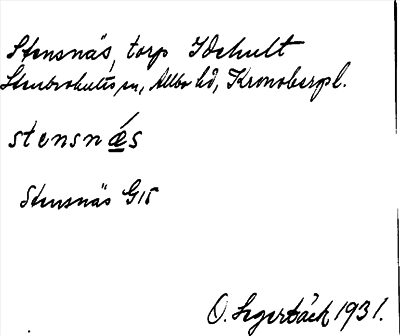 Stensnäs, torp Idehult
Stenbrohults sn, Allbo hd, Kronobergs l.
stensnǽs
Stensnäs G15
O. Segerbäck 1931.